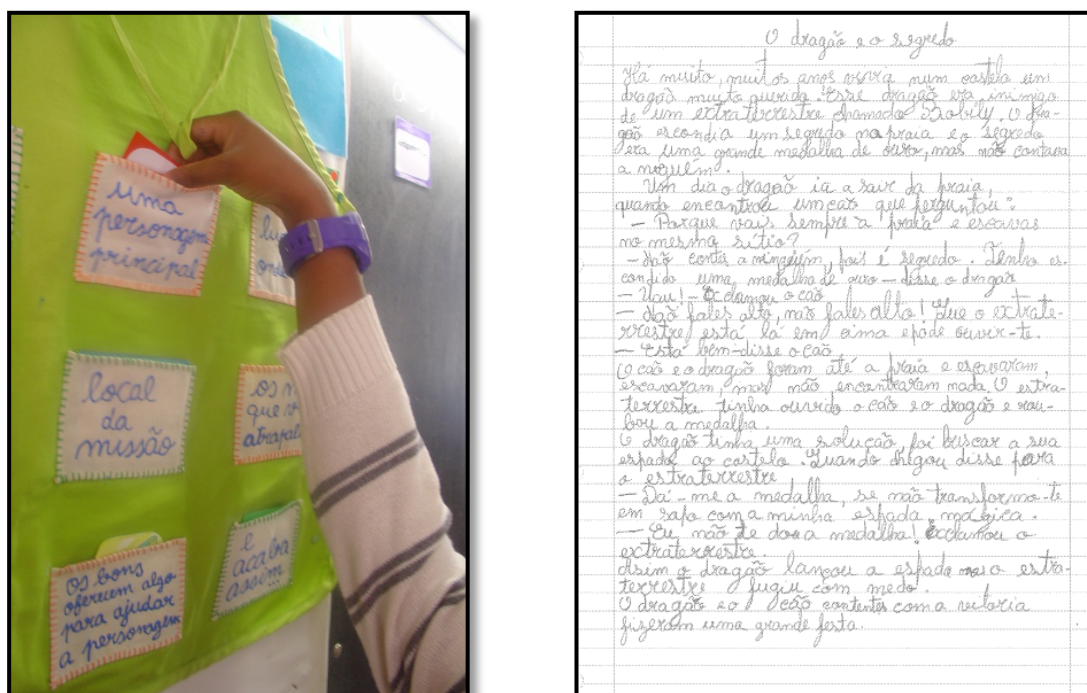 uma
personagem
principal
lu
onde
local
da
missão
os m
que vo
atrapal
Os bons
oferecem algo
para ajudar
a personagem
e
acaba
assim...
O dragão e o segredo
Há muito, muitos anos vivia num castelo um
dragão muito querido. Esse dragão era inimigo
de um extraterrestre chamado Bobily. O dra-
gão escondia um segredo na praia e o segredo
era uma grande medalha de ouro, mas não contava
a ninguém.
Um dia o dragão ia a sair da praia,
quando encontrou um cão que perguntou:
— Porque vais sempre à praia e escavas
no mesmo sítio?
— Não contes a ninguém, pois é segredo. Tenho es-
condido uma medalha de ouro — disse o dragão
— Uau! — Exclamou o cão
— Não fales alto, não fales alto! Que o extrate-
rrestre está lá em cima e pode ouvir-te.
— Está bem – disse o cão
O cão e o dragão foram até a praia e escavaram,
escavaram, mas não encontraram nada. O estra-
terrestre tinha ouvido o cão e o dragão e rou-
bou a medalha.
O dragão tinha uma solução, foi buscar a sua
espada ao castelo. Quando chegou disse para
o estraterrestre
— Dá-me a medalha, se não transformo-te
em sapo com a minha espada mágica.
— Eu não te dou a medalha! Exclamou o
extraterrestre.
Asim o dragão lançou a espada o estra-
terrestre fugiu com medo.
O dragão e o cão contentes com a vitoria
fizeram uma grande festa.